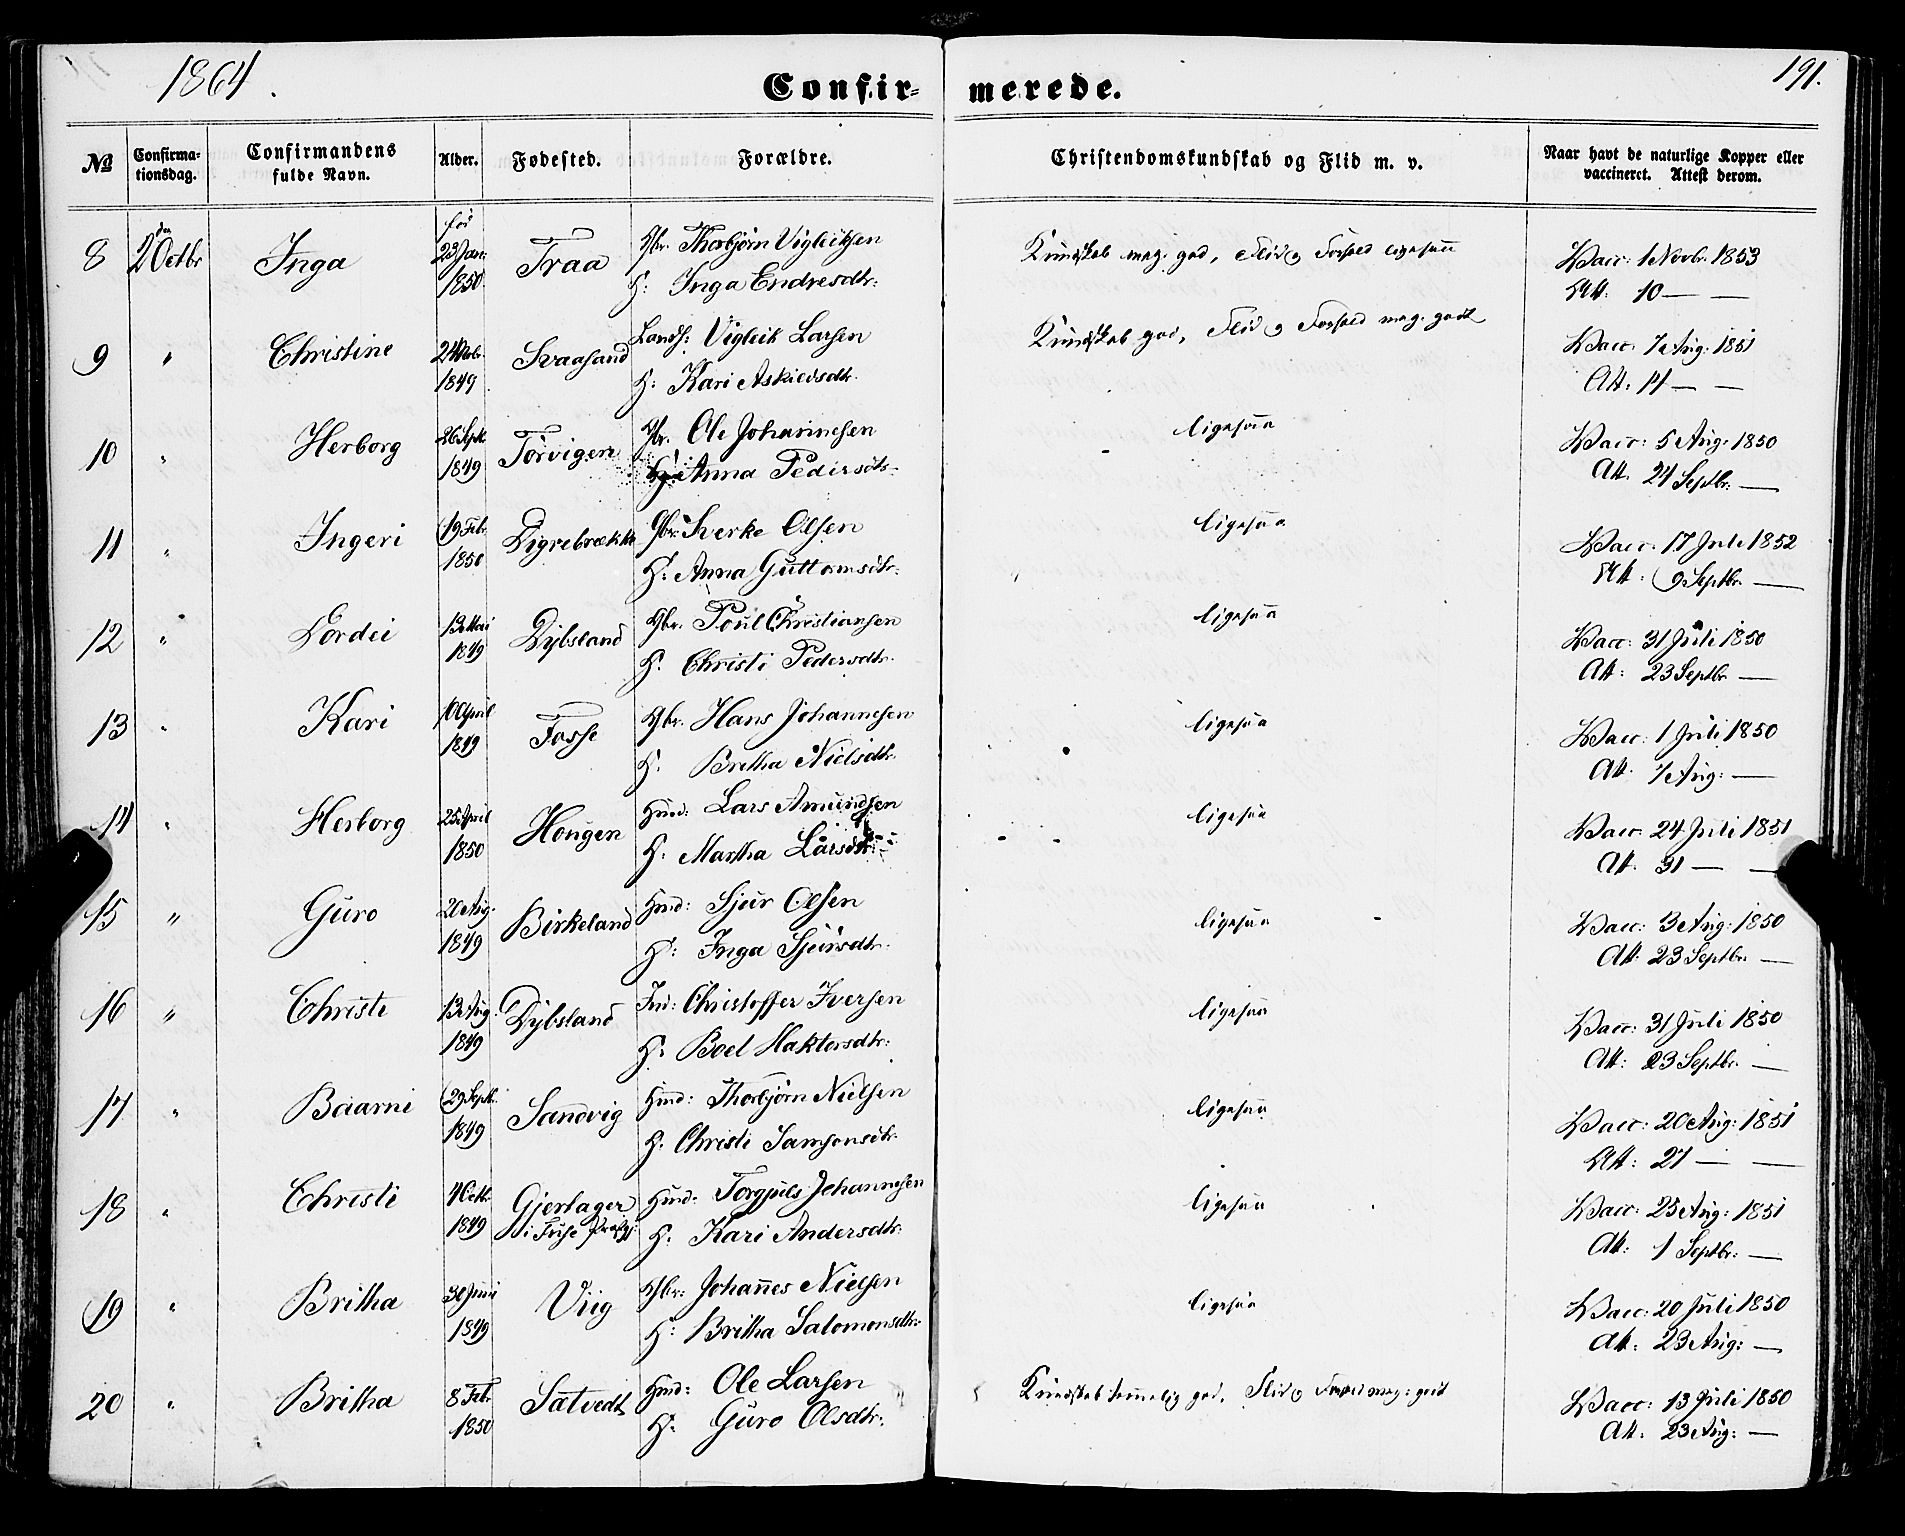 1864.
Confir-merede.
191.
No
Confirma-
tionsdag.
Confirmandens
fulde Navn.
Alder.
Fødested.
Forældre.
Christendomskundskab og Flid m. v.
Naar havt de naturlige Kopper eller
vaccineret. Attest derom.
8 2den Octbr Inga før 23 Jan. 1850 Traa Gbr. Thorbjörn Vigleiksen Kundskab meg. god, Flid og Forhold ligesaa Vacc: 1 Novbr. 1853
H: Inga Endresdtr: Att: 10 — —
9 " Christine 1849 Svaasand Vigleik Larsen Kundskab god, Flid og Forhold meg. godt Vacc. 7 Aug: 1851
H: Kari Askieldsdtr. Att: 14 — —
10 " Herborg 26 Sept. 1849 Törvigen Gbr. Ole Johannesen ligesaa Vacc: 5 Aug: 1850
Anna Pedersdtr. Att. 24 Septbr. —
11 " Ingeri 19 Febr. 1850 Digrebrække Gbr. Sverke Olsen ligesaa Vacc. 17 Juli 1852
H: Anna Guttormsdtr. Att: 9 Septbr. —
12 " Dordei 13 Mai 1849 Dybsland Gbr. Poul Christiansen ligesaa Vacc: 31 Juli 1850
H: Christi Pedersdtr. Att: 23 Septbr. —
13 " Kari 10 April 1849 Fosse Gbr. Hans Johannesen ligesaa Vacc: 1 Juli 1850
H. Britha Nielsdtr. Att. 7 Aug: —
14 " Herborg 25 April 1850 Hougen Huusd: Lars Amundsen ligesaa Vacc. 24 Juli 1851
H: Martha Larsdtr: Att. 31 — —
15 " Guro 20 Aug. 1849 Birkeland Huusd: Sjur Olsen ligesaa Vacc: 3 Aug: 1850
H: Inga Sjursdtr. Att: 23 Septbr. —
16 " Christi 13 Aug. 1849 Dybsland Ind: Christoffer Iversen ligesaa Vacc: 31 Juli 1850
H: Boel Haktorsdtr: Att: 23 Septbr. —
17 " Baarni 29 Septb. 1849 Sandvig Huusd: Thorbjörn Nielsen ligesaa Vacc: 20 Aug: 1851
H. Christi Samsonsdtr. Att: 27 — —
18 " Christi 4 Octb. 1849 Gjerlager Huusd: Torgjuls Johannesen ligesaa Vacc: 25 Aug: 1851
i Fuse Præstgj: H. Kari Andersdtr. Att: 1 Septbr: —
19 " Britha 30 Juni 1849 Viig Gbr: Johannes Nielsen ligesaa Vacc: 20 Juli 1850
H: Britha Salomonsdtr. Att: 23 Aug: —
20 " Britha 8 Feb. 1850 Sætvedt Huusd: Ole Larsen Kundskab temmelig god, Flid og Forhold meg: godt Vacc: 13 Juli 1850
H: Guro Olsdtr. Att: 23 Aug: —